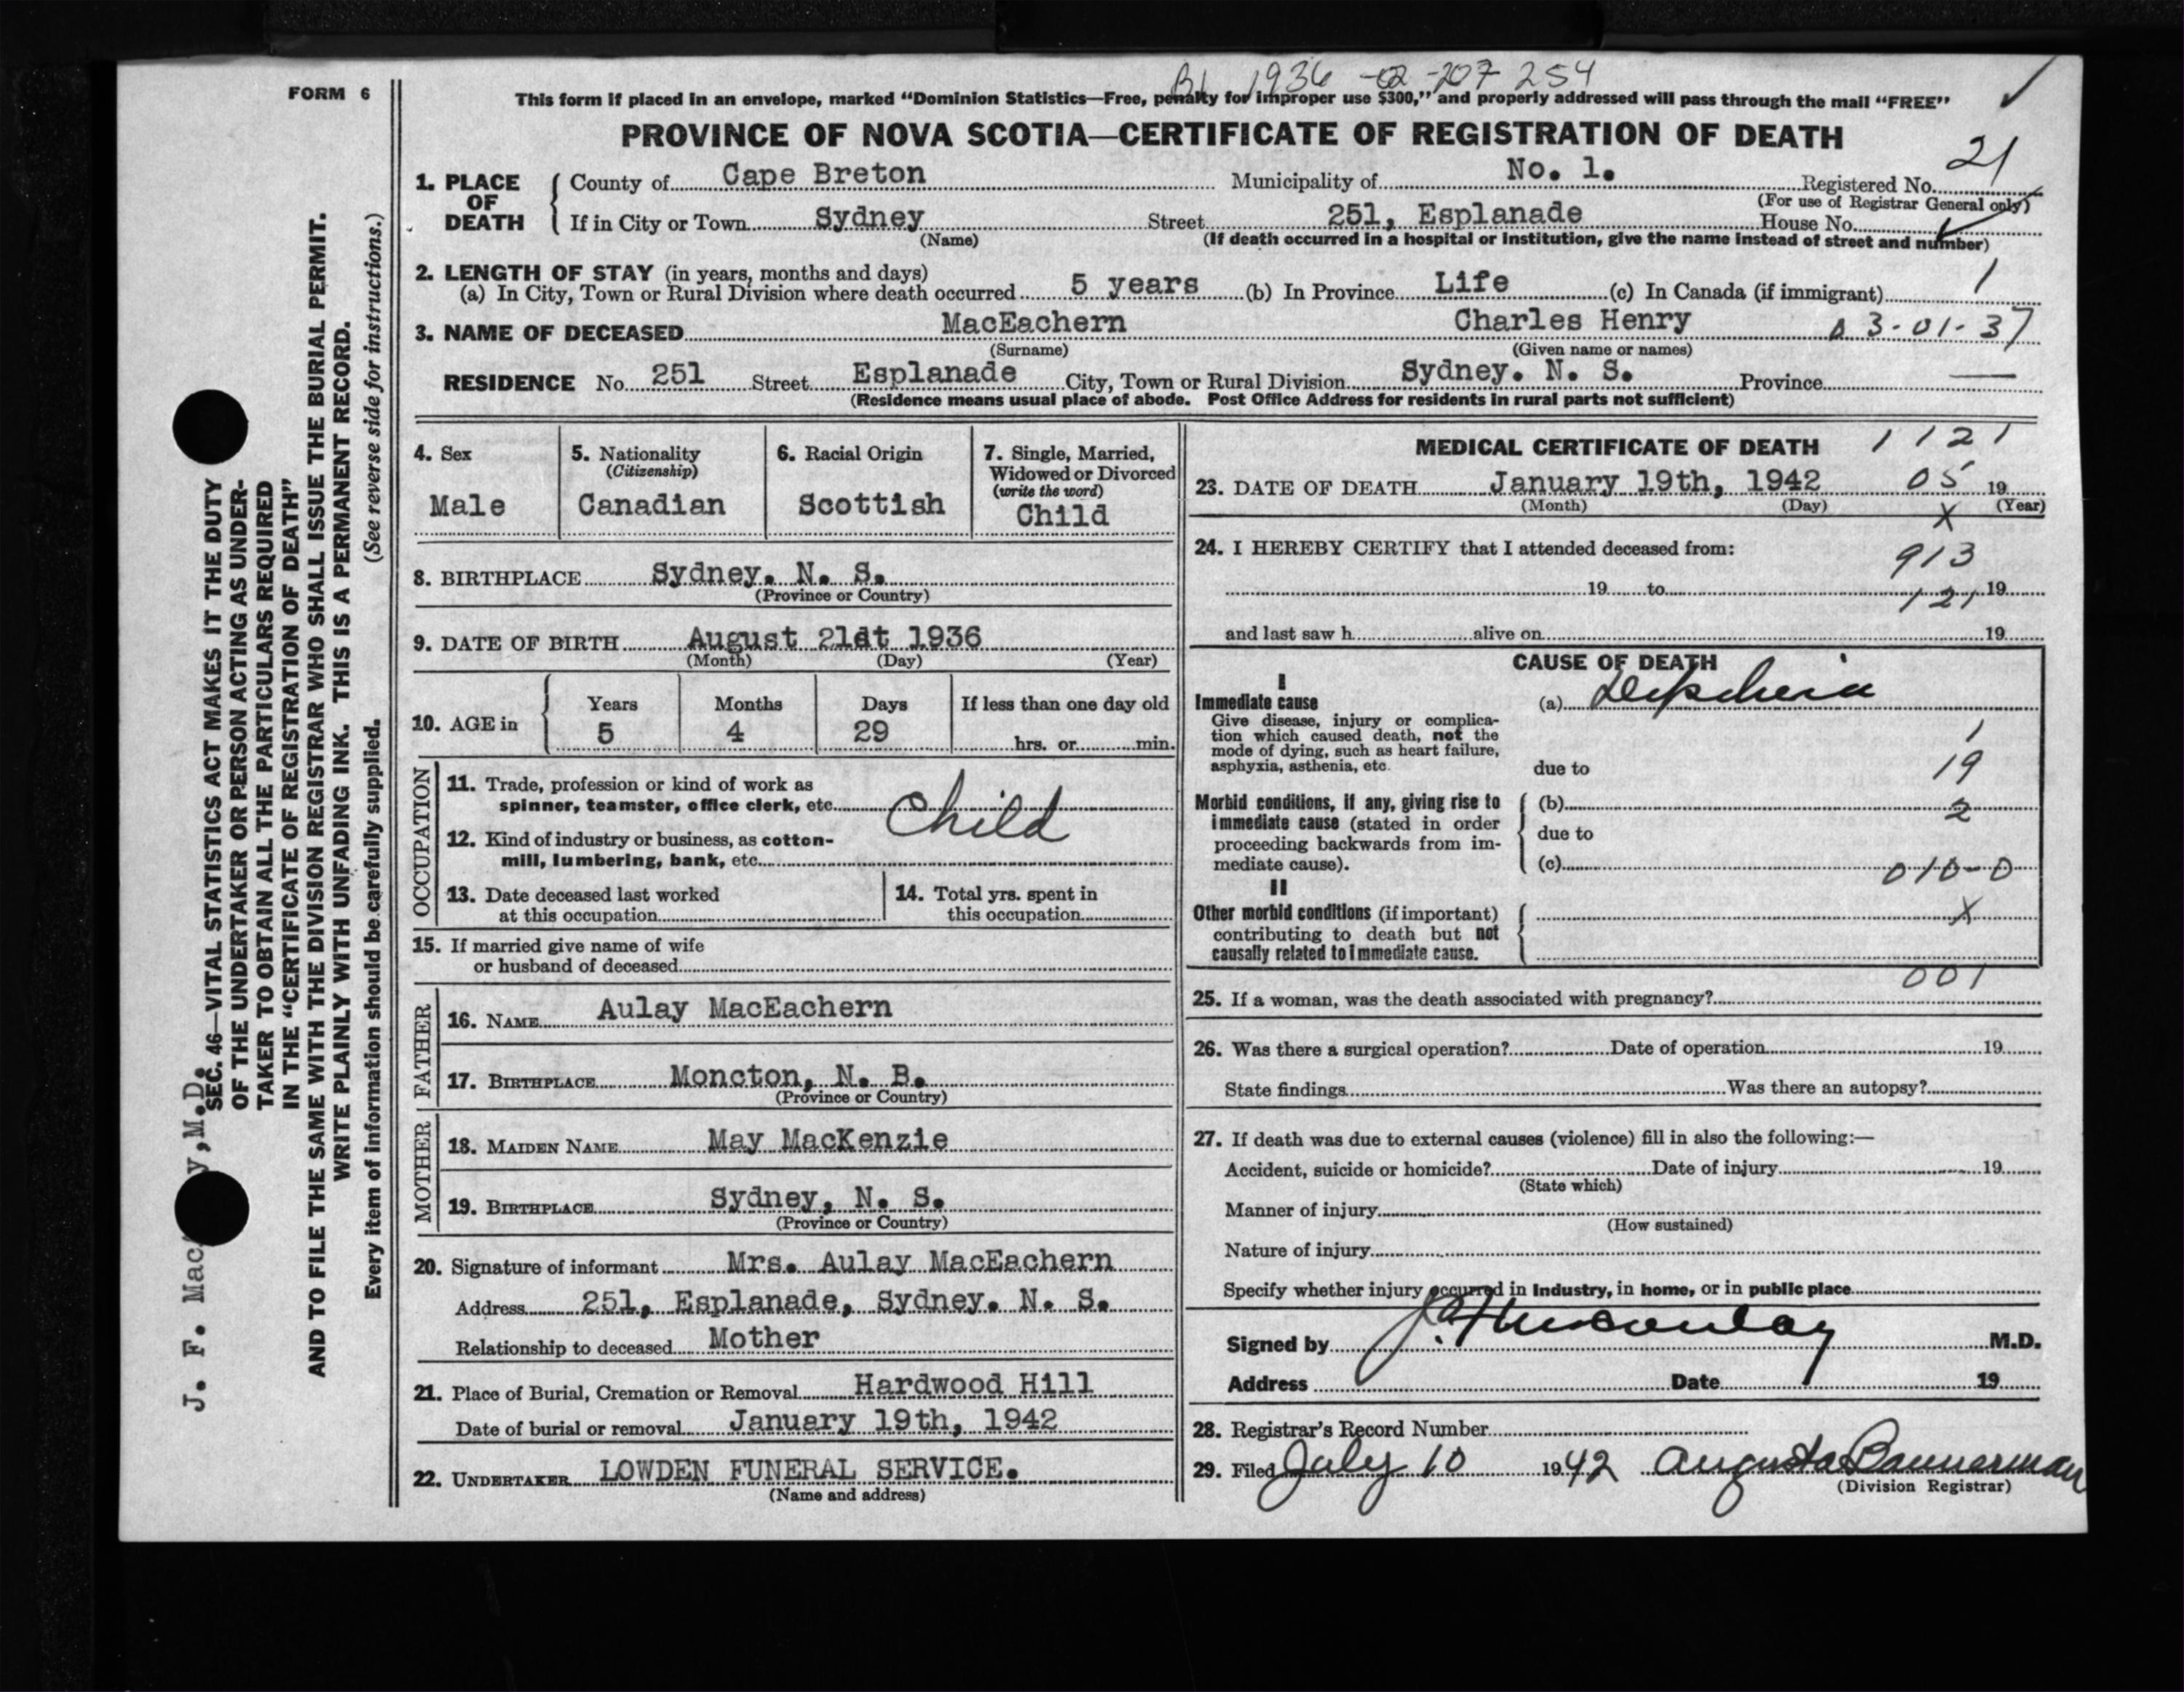 Bt 1936 -02-207 254
FORM 6
This form if placed in an envelope, marked “Dominion Statistics—Free, penalty for improper use $300,” and properly addressed will pass through the mail “FREE”
PROVINCE OF NOVA SCOTIA—CERTIFICATE OF REGISTRATION OF DEATH
21
1. PLACE OF DEATH County of Cape Breton Municipality of No. 1. Registered No.
(For use of Registrar General only)
If in City or Town Sydney Street 251, Esplanade House No.
(Name) (If death occurred in a hospital or institution, give the name instead of street and number)
2. LENGTH OF STAY (in years, months and days)
(a) In City, Town or Rural Division where death occurred 5 years (b) In Province Life (c) In Canada (if immigrant) 1
3. NAME OF DECEASED MacEachern Charles Henry 3-01-37
(Surname) (Given name or names)
RESIDENCE No. 251 Street Esplanade City, Town or Rural Division Sydney. N. S. Province —
(Residence means usual place of abode. Post Office Address for residents in rural parts not sufficient)
4. Sex
Male
5. Nationality
(Citizenship)
Canadian
6. Racial Origin
Scottish
7. Single, Married,
Widowed or Divorced
(write the word)
Child
8. BIRTHPLACE Sydney. N. S.
(Province or Country)
9. DATE OF BIRTH August 21st 1936
(Month) (Day) (Year)
10. AGE in
Years Months Days If less than one day old
5 4 29 hrs. or min.
OCCUPATION
11. Trade, profession or kind of work as
spinner, teamster, office clerk, etc. Child
12. Kind of industry or business, as cotton-
mill, lumbering, bank, etc.
13. Date deceased last worked
at this occupation
14. Total yrs. spent in
this occupation
15. If married give name of wife
or husband of deceased
FATHER
16. NAME Aulay MacEachern
17. BIRTHPLACE Moncton, N. B.
(Province or Country)
MOTHER
18. MAIDEN NAME May MacKenzie
19. BIRTHPLACE Sydney, N. S.
(Province or Country)
20. Signature of informant Mrs. Aulay MacEachern
Address 251, Esplanade, Sydney. N. S.
Relationship to deceased Mother
21. Place of Burial, Cremation or Removal Hardwood Hill
Date of burial or removal January 19th, 1942
22. UNDERTAKER LOWDEN FUNERAL SERVICE.
(Name and address)
MEDICAL CERTIFICATE OF DEATH 1121
23. DATE OF DEATH January 19th, 1942 05 19
(Month) (Day) (Year)
X
24. I HEREBY CERTIFY that I attended deceased from:
913
19 to 19
121
and last saw h alive on 19
CAUSE OF DEATH
I
Immediate cause (a)
Give disease, injury or complica-
tion which caused death, not the
mode of dying, such as heart failure,
asphyxia, asthenia, etc.
1
due to 19
Morbid conditions, if any, giving rise to
immediate cause (stated in order
proceeding backwards from im-
mediate cause).
(b) 2
due to
(c) 010-0
II
Other morbid conditions (if important)
contributing to death but not
causally related to immediate cause.
X
001
25. If a woman, was the death associated with pregnancy?
26. Was there a surgical operation? Date of operation 19
State findings Was there an autopsy?
27. If death was due to external causes (violence) fill in also the following:—
Accident, suicide or homicide? Date of injury 19
(State which)
Manner of injury
(How sustained)
Nature of injury
Specify whether injury occurred in Industry, in home, or in public place
Signed by M.D.
Address Date 19
28. Registrar's Record Number
29. Filed July 10 1942 Augusta Bannerman
(Division Registrar)
J. F. Mac y,M.D.
SEC. 46—VITAL STATISTICS ACT MAKES IT THE DUTY
OF THE UNDERTAKER OR PERSON ACTING AS UNDER-
TAKER TO OBTAIN ALL THE PARTICULARS REQUIRED
IN THE “CERTIFICATE OF REGISTRATION OF DEATH”
AND TO FILE THE SAME WITH THE DIVISION REGISTRAR WHO SHALL ISSUE THE BURIAL PERMIT.
WRITE PLAINLY WITH UNFADING INK. THIS IS A PERMANENT RECORD.
Every item of information should be carefully supplied. (See reverse side for instructions.)